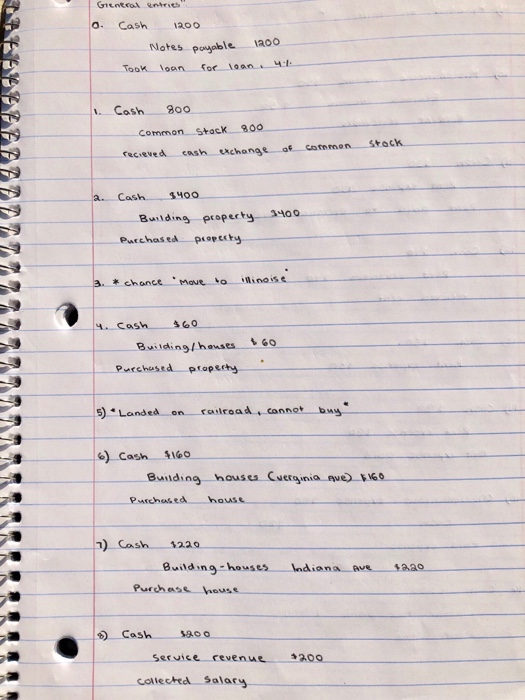 General entries"
0. Cash 1200
Notes payable 1200
Took loan for loan, 4%
1. Cash 800
Common Stock 800
recieved cash exchange of common stock
2. Cash $400
Building property $400
Purchased property
3. * chance "Move to illinoise"
4. Cash $60
Building/houses $60
Purchased property
5) "Landed on railroad, cannot buy"
6) Cash $160
Building houses (verginia Ave) $160
Purchased house
7) Cash $220
Building-houses Indiana Ave $220
Purchase house
8) Cash $200
Service revenue $200
Collected Salary